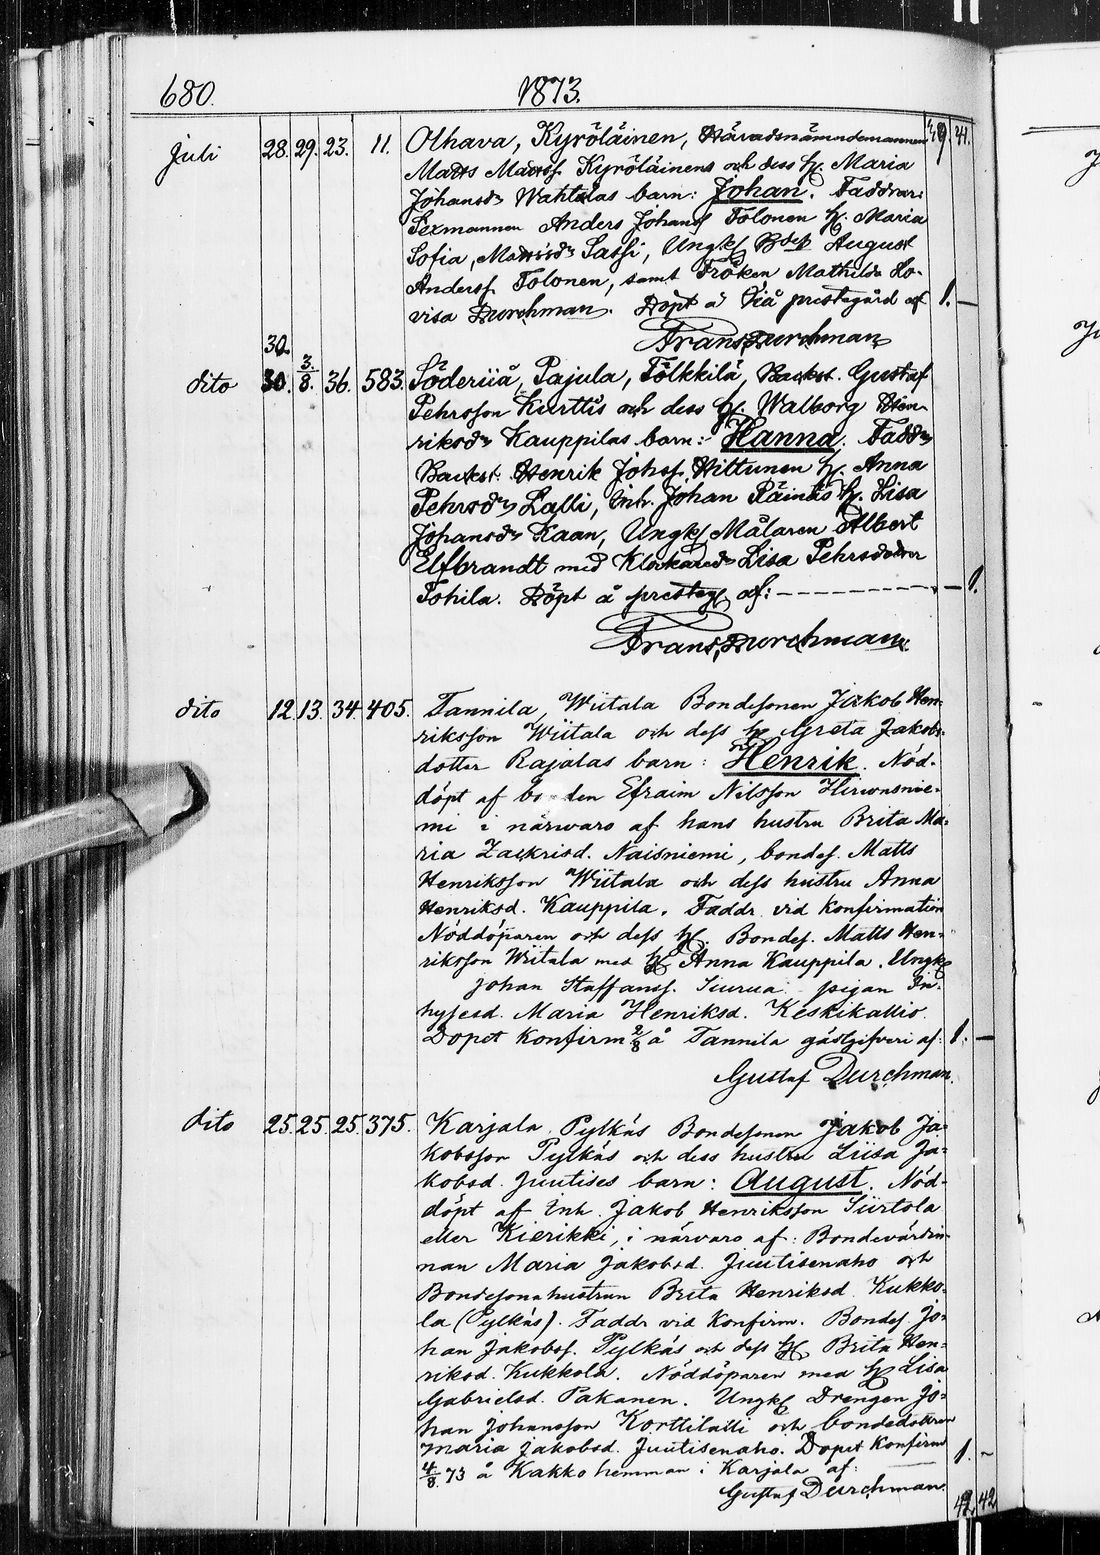 680. 1873.
Juli 28. 29. 23. 11. Olhava, Kyröläinen, Häradsnämndemannen 39. 41.
Matts Mattsf. Kyröläinens och dess h. Maria
Johansdr Wahtolas barn: Johan. Faddrar:
Sexmannen Anders Johansf Tolonen h. Maria
Sofia, Mattsdr Sassi, Ungk Bdes August
Andersf. Tolonen, samt Fröken Mathilda Lo-
visa Durchman. Döpt å Iiå prestegård af 1. —
30. Frans Durchman
dito 30. 3/8. 36. 583. Söderiiå, Pajula, Tölkkilä, Backst. Gustaf
Pehrsson Kurttis och dess h. Walborg Hen-
riksdr Kauppilas barn: Hanna. Faddr
Backst. Henrik Johsf. Hiltunen h. Anna
Pehrsdr Lalli, Inh. Johan h. Lisa
Johansdr Kaan, Ungk Målaren Albert
Elfbrandt med Klockaredr Lisa Pehrsdotter
Tohila. Döpt å presteg af: — 1.
Frans Durchman
dito 12. 13. 34. 405. Tannila, Wiitala Bondesonen Jakob Hen-
riksson Wiitala och dess h Greta Jakobs-
dotter Rajalas barn: Henrik. Nöd-
döpt af bonden Efraim Nilsson Hirvonsnie-
mi i närwaro af hans hustru Brita Ma-
ria Zackrisd. Naisniemi, bondes. Matts
Henriksson Wiitala och dess hustru Anna
Henriksd. Kauppila. Faddr vid Konfirmation
Nöddöparen och dess h. Bondes. Matts Hen-
riksson Wiitala med h Anna Kauppila. Ungk
Johan Staffansf. Siurua pigan In-
hysesd. Maria Henriksd. Keskikallio.
Dopet Konfirm 2/8 å Tannila gästgifveri af: 1. —
Gustaf Durchman.
dito 25. 25. 25. 375. Karjala Pylkäs Bondesonen Jakob Ja-
kobsson Pylkäs och dess hustru Liisa Ja-
kobsd. Juutises barn: August. Nöd-
döpt af Inh. Jakob Henriksson Siirtola
eller Kierikki, i närvaro af: Bondevärdin-
nan Maria Jakobsd. Juutisenaho och
Bondesonahustrun Brita Henriksd Kukko-
la (Pylkäs). Faddr vid Konfirm. Bondes. Jo-
han Jakobsf. Pylkäs och dess h Brita Hen-
riksd. Kukkola. Nöddöparen med h Lisa
Gabrielsd. Pakanen. Ungk Drengen Jo-
han Johansson Korttilalli och bondedottren
Maria Jakobsd. Juutisenaho. Dopet Konfirm
4/8 73 å Kakko hemman i Karjala af: 1. —
Gustaf Durchman.
42 42